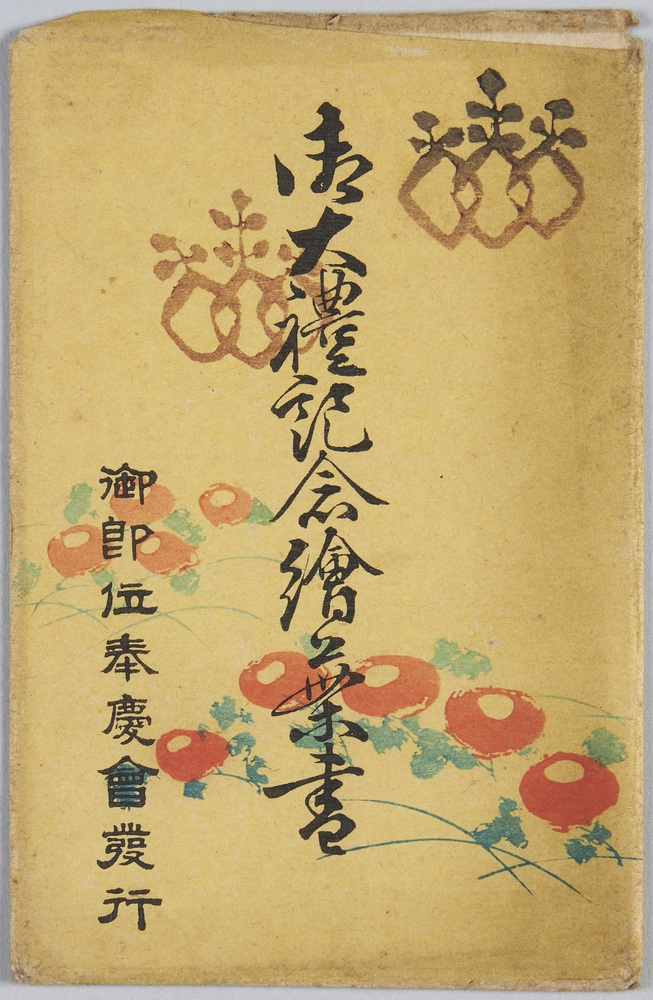 御大禮記念繪葉書
御即位奉慶會發行